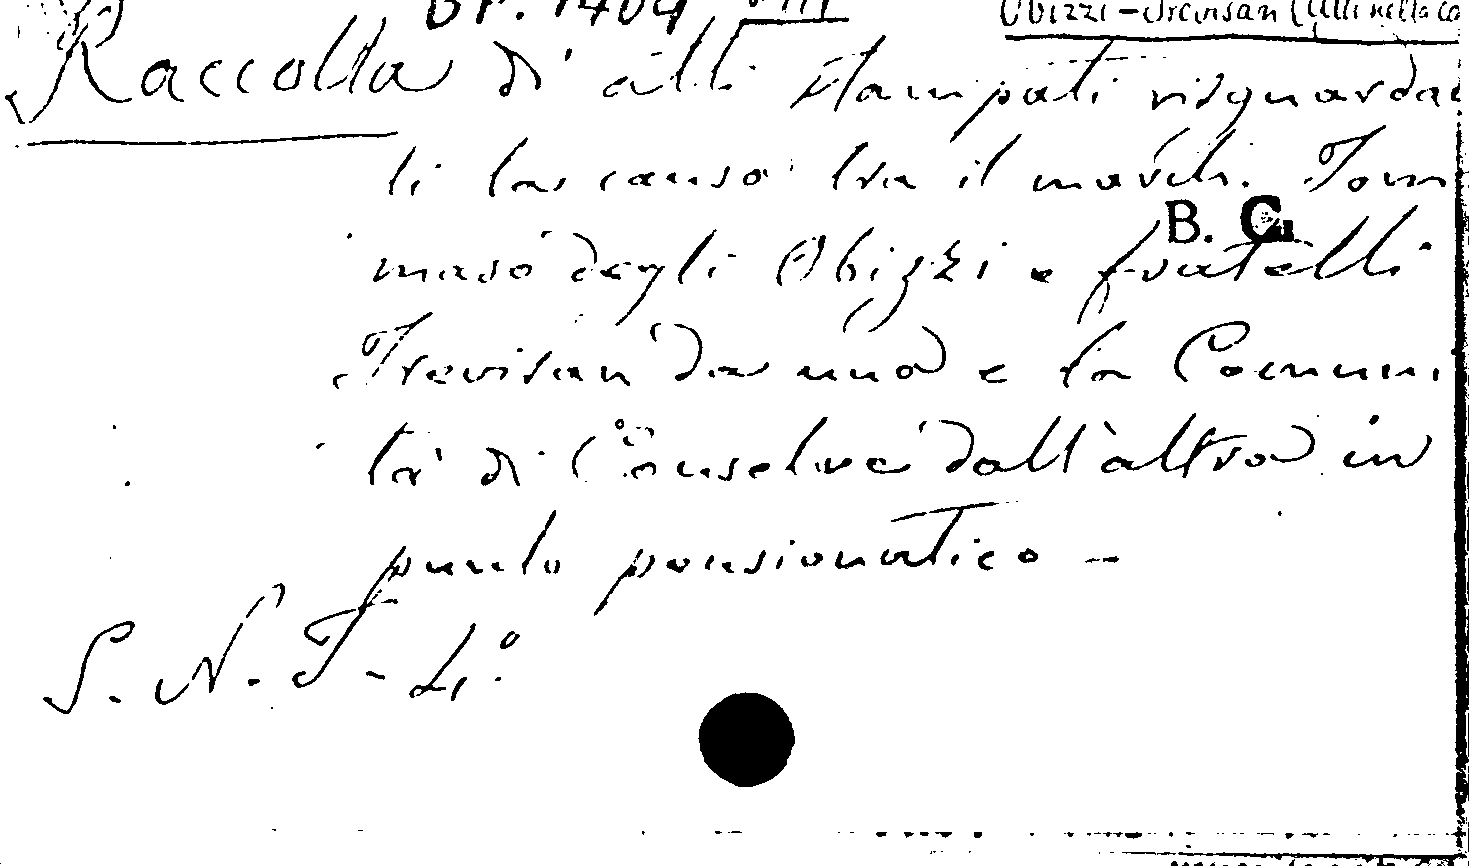 BP. 1404 VIII
Obizzi - Trevisan (Atti nella ca
Raccolta di atti stampati risguardan
ti la causa tra il march. Tom
B. C.
maso degli Obizzi e fratelli
Trevisan da una e la Comuni
tà di Conselve dall'altra in
punto pensionatico -
S. N. T - 4°.